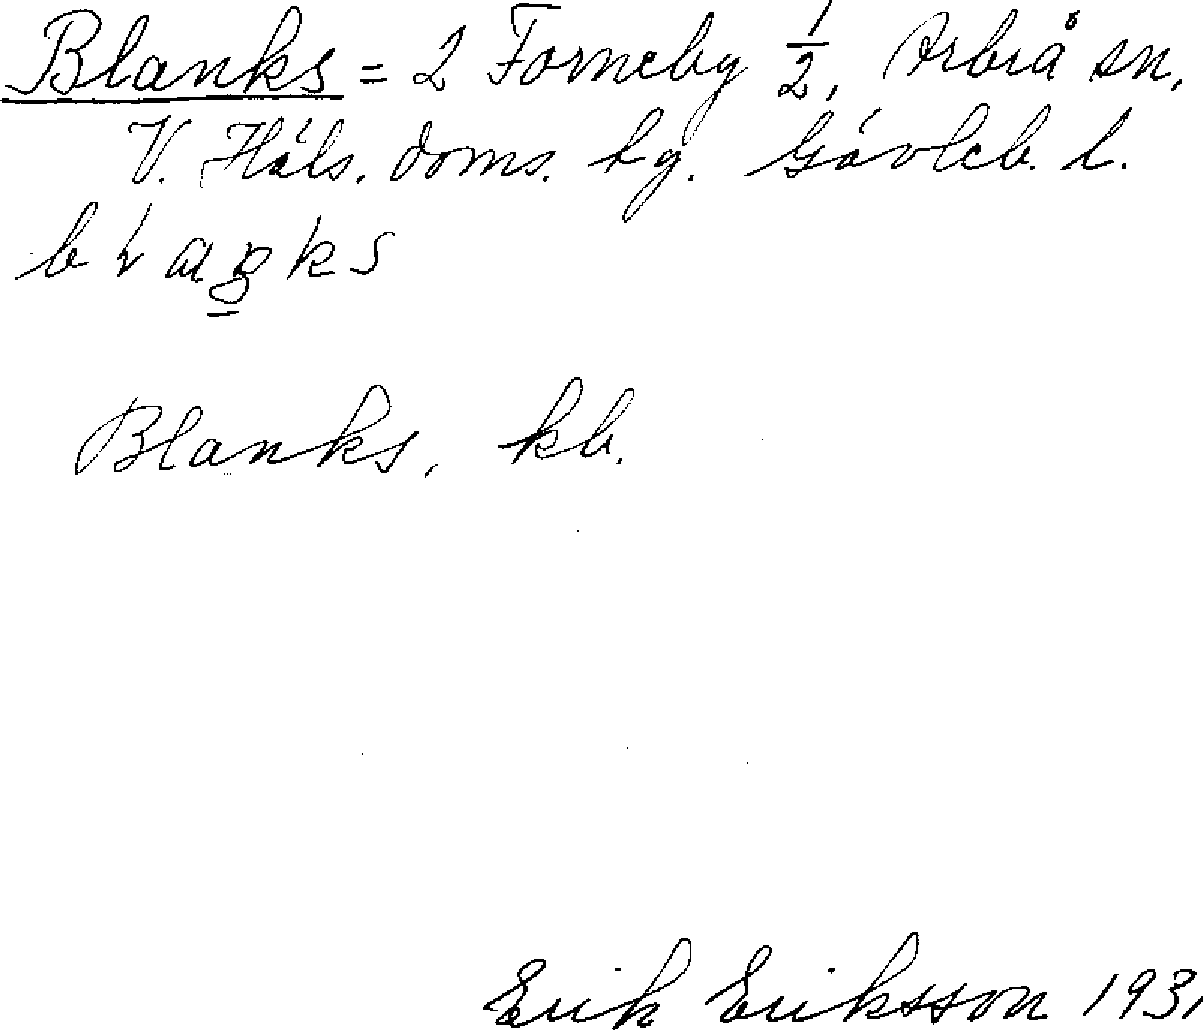 Blanks = 2 Forneby 1/2, Arbrå sn,
V. Häls. doms. hg. Gävleb. l.
Blanks, kb.
Erik Eriksson 1931